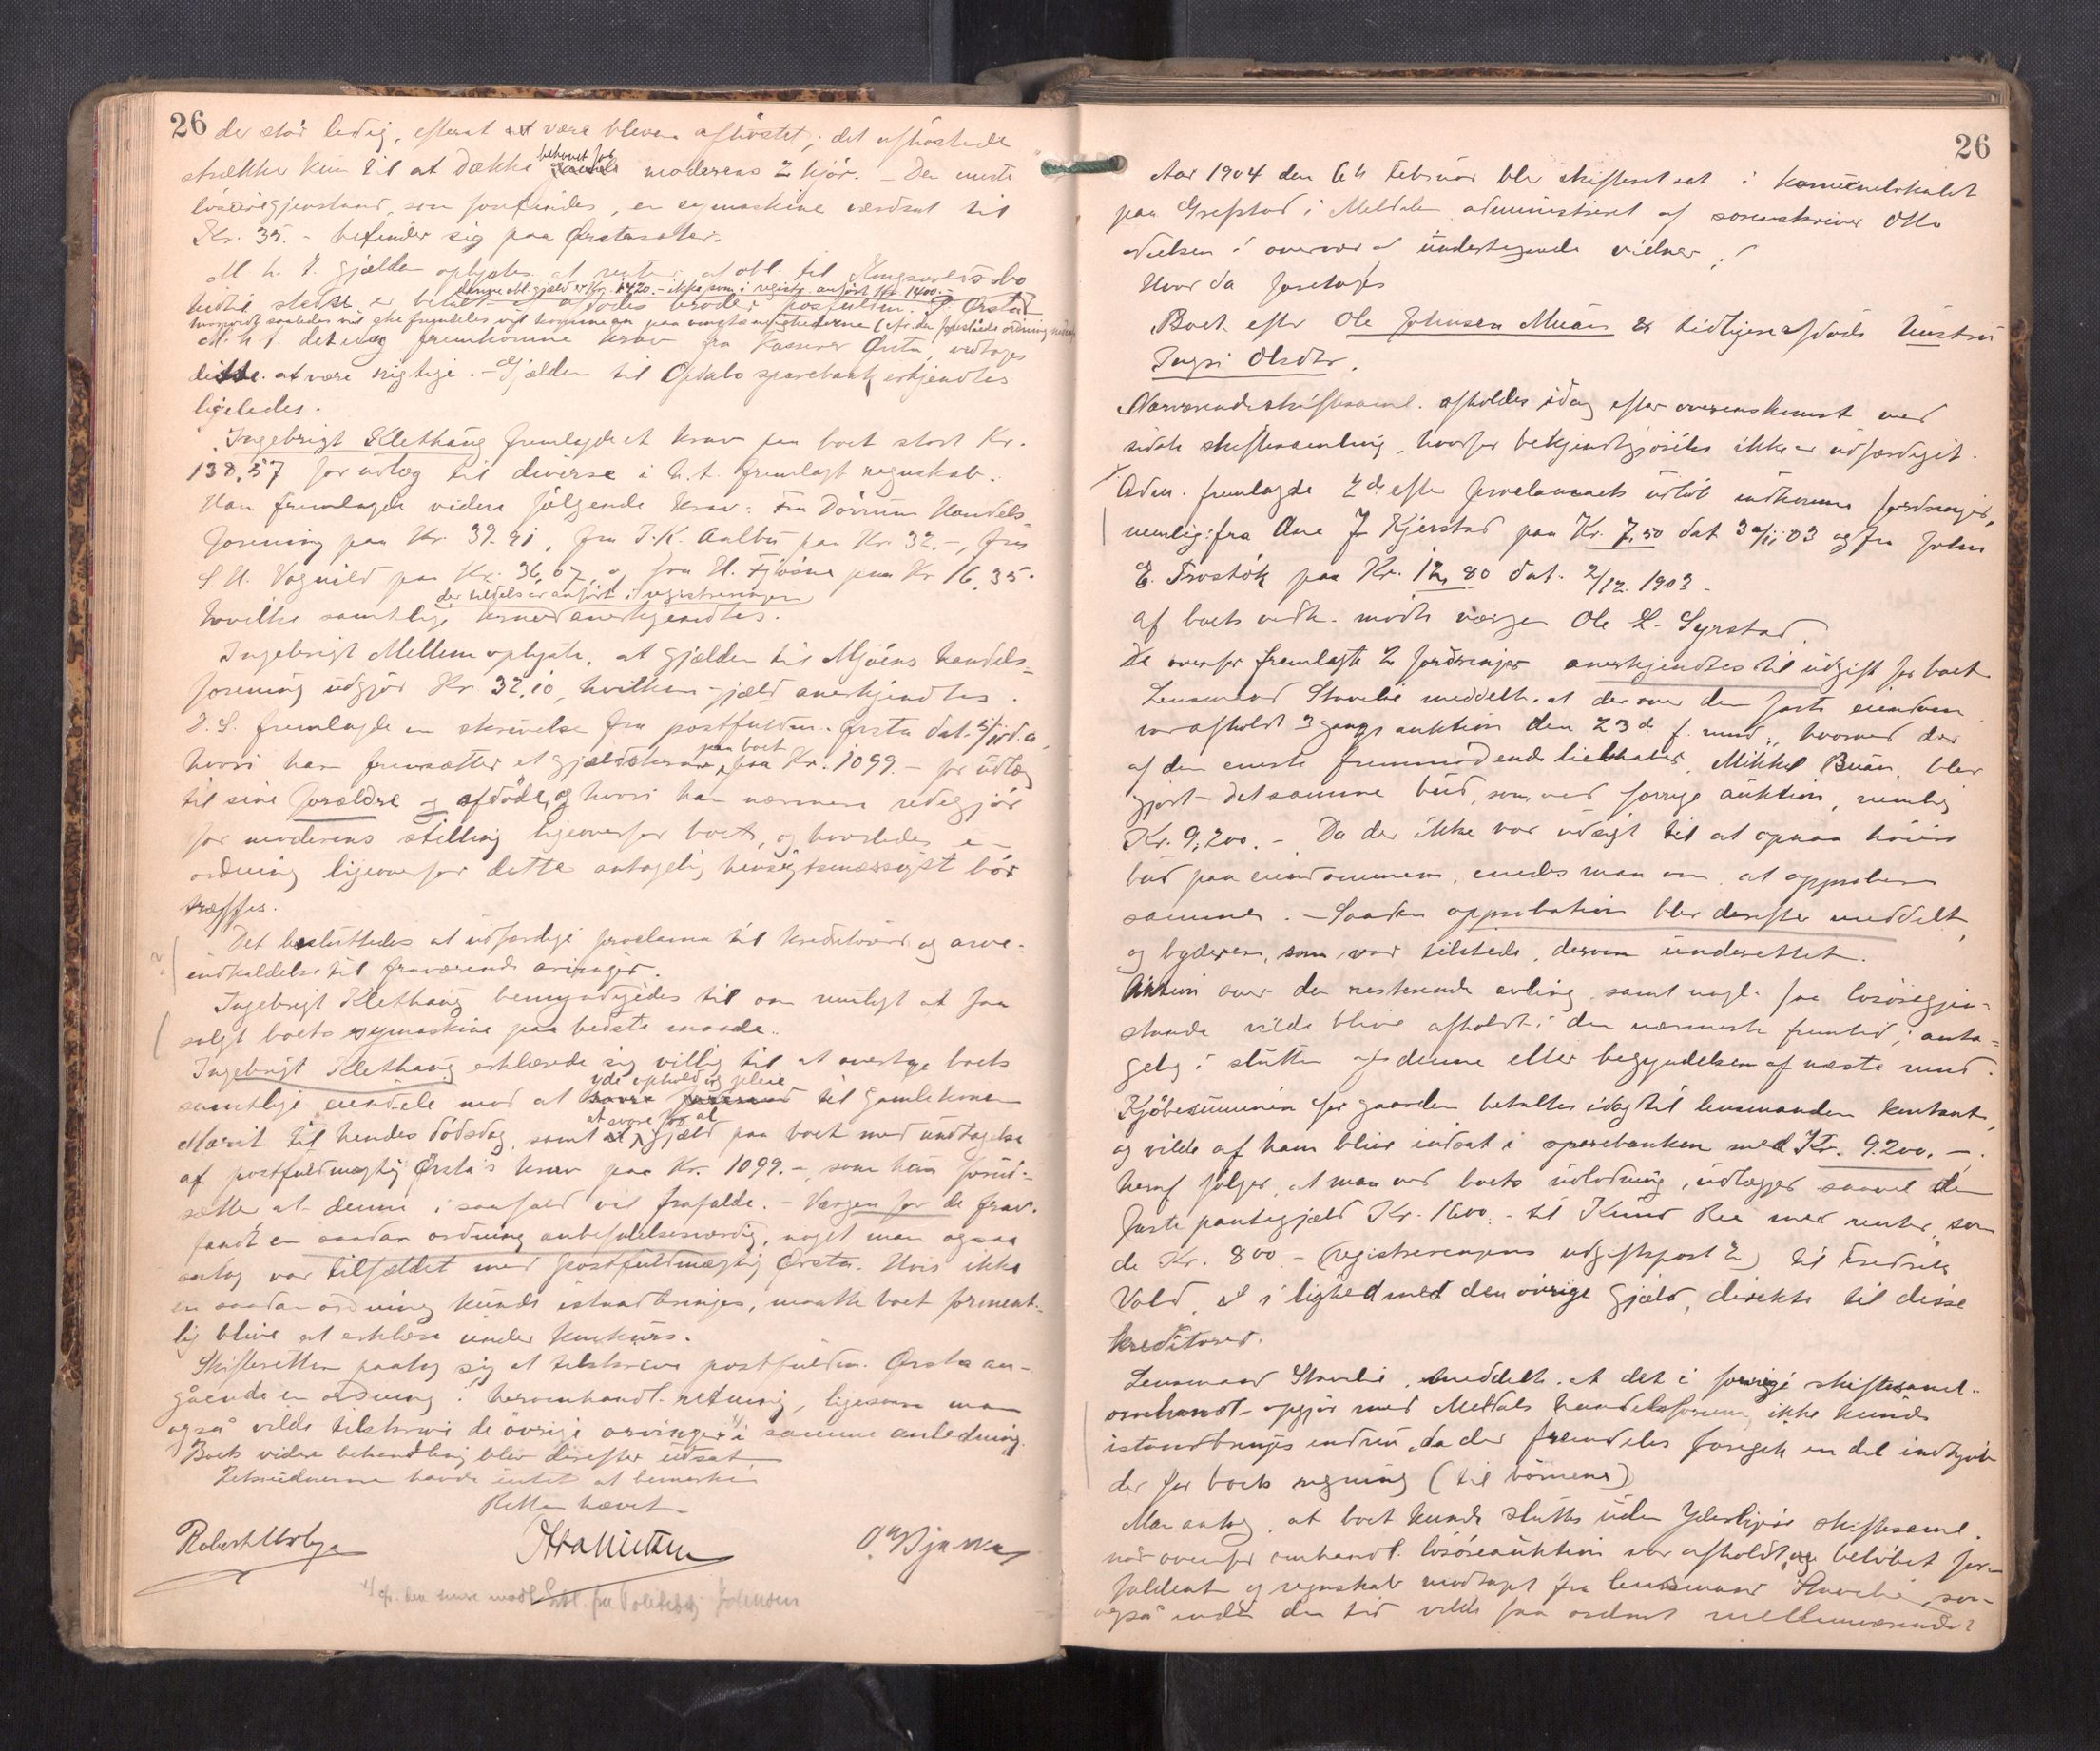 26
de står ledig, efterat at være bleven afhøstet; det afhøstede
strækker kun til at dække behovet for moderens 2 kjør. – Den eneste
løsøregjenstand, som forefindes, en symaskine værdsat til
Kr. 35.- befinder sig paa Ørstasæter.
M. h. t. gjælden oplystes at renter af obl. til Kongsvolds bo
denne obl.gjæld er Kr. 1420.- ikke som i registr. anført Kr. 1400.-
hidtil stedse er betalt af afdødes broder postfuldm. Ørsta
M. h. t. det idag fremkomne krav fra kasserer Ørsta, vedtoges
dette at være rigtige. – Gjælden til Opdals sparebank erkjendtes
ligeledes.
Ingebrigt Klethaug fremlagde et krav paa boet stort Kr.
138,57 for udlæg til diverse i h. t. fremlagt regnskab.
Han fremlagde videre følgende krav: Fra Dørrum Handels-
forening paa Kr. 39.91, fra J. K. Aalbu paa Kr. 32.-, fra
S. H. Vognild paa Kr. 36,07, og fra H. Fjøsne paa Kr. 16.35.
der tildels er anført i registreringen
hvilke samtlige krav anerkjendtes.
Ingebrigt Mellem oplyste, at gjælden til Mjøens handels-
forening udgjør Kr. 32.10, hvilken gjæld anerkjendtes.
D. S. fremlagde en skrivelse fra postfuldm. Ørsta dat.
hvori han fremsætter et gjældskrav paa boet paa Kr. 1099.- for udlæg
til sine forældre og afdøde, og hvori han nærmere redegjør
for moderens stilling ligeoverfor boet, og hvorledes en
ordning ligeoverfor dette antagelig hensigtsmæssigst bør
træffes.
Det besluttedes at udfærdige proclama til kreditorer og arve-
indkaldelse til fraværende arvinger.
Ingebrigt Klethaug bemyndigedes til om muligt at faa
solgt boets symaskine paa bedste maade.
Ingebrigt Klethaug erklærede sig villig til at overtage boets
samtlige eiendele mod at yde ophold og pleie til gamlekonen
Marit til hendes dødsdag, samt at svare for al gjæld paa boet med undtagelse
af postfuldmægtig Ørsta's krav paa Kr. 1099.-, som han forud-
sætter at denne i saafald vil frafalde. – Værgen for de frav.
fandt en saadan ordning anbefalelsesværdig, noget man ogsaa
antog var tilfældet med postfuldmægtig Ørsta. Hvis ikke
en saadan ordning kunde istandbringes, maatte boet forment-
lig blive at erklære under konkurs.
Skifteretten paatog sig at tilskrive postfuldm. Ørsta an-
gående en ordning i heromhandl. retning, ligesom man
også vilde tilskrive de øvrige arvinger i samme anledning.
Boets videre behandling blev derefter udsat.
havde intet at bemærke
Retten hævet
26
Aar 1904 den 6te Februar blev skifteret sat i kommunelokalet
paa Grefstad i Meldalen administreret af sorenskriver Otto
i overvær af undertegnede vidner;
Hvor da foretoges
Boet efter Ole Johnsen Muan & tidligere afdøde hustru
Ingri Olsdtr.
Nærværende skiftesaml. afholdes idag efter overenskomst ved
sidste skiftesamling, hvorfor bekjendtgjørelse ikke er udfærdiget.
Adm. fremlagde 2de efter proclamaets udløb indkomne fordringer,
nemlig: fra Ane J. Kjerstad paa Kr. 7,50 dat 30/11 03 og fra John
E. Trostök paa Kr. 12,80 dat. 2/12. 1903.
Af boets vedk. mødte værgen Ole L. Syrstad.
De ovenfor fremlagte 2 fordringer anerkjendtes til udgift for boet.
Lensmand Stavlie meddelte, at der over den faste eiendom
var afholdt 3 gangs auktion den 23de f. mnd., hvorved der
af den eneste fremmødende liebhaber, Mikkel Buan, blev
gjort det samme bud, som ved forrige auktion, nemlig
Kr. 9,200.- Da der ikke var udsigt til at opnaa høiere
bud paa eiendommen, enedes man om at approbere
samme. – Saadan approbation blev derefter meddelt,
og byderen, som var tilstede, derom underettet.
Auktion over den resterende avling samt nogl. faa løsøregjen-
stande vilde blive afholdt i den nærmeste fremtid; anta-
gelig i slutten af denne eller begyndelsen af næste mnd.
Kjøbesummen for gaarden betaltes idag til lensmanden kontant,
og vilde af ham blive indsat i sparebanken med Kr. 9.200.-.
Heraf følger, at man ved boets udlodning, udlægger saavel den
faste pantegjæld Kr. 1600.- til Knud Ree med renter, som
de Kr. 800.- (registreringens udgiftspost 2) til Fredrik
Vold, i lighed med den øvrige gjæld, direkte til disse
kreditorer.
Lensmand Stavlie meddelte, at det i forrige skiftesaml.
omhandl. opgjør med Meldals handelsforening ikke kunde
istandbringes endnu, da der fremdeles foregik en del indkjøb
der for boets regning (til børnene)
Man antog, at boet kunde sluttes uden yderligere skiftesaml.
når ovenfor omhandl. løsøreauktion var afholdt, og beløbet for-
faldent og regnskab modtaget fra lensmand Stavlie, som
også inden den tid vilde faa ordnet mellemværende